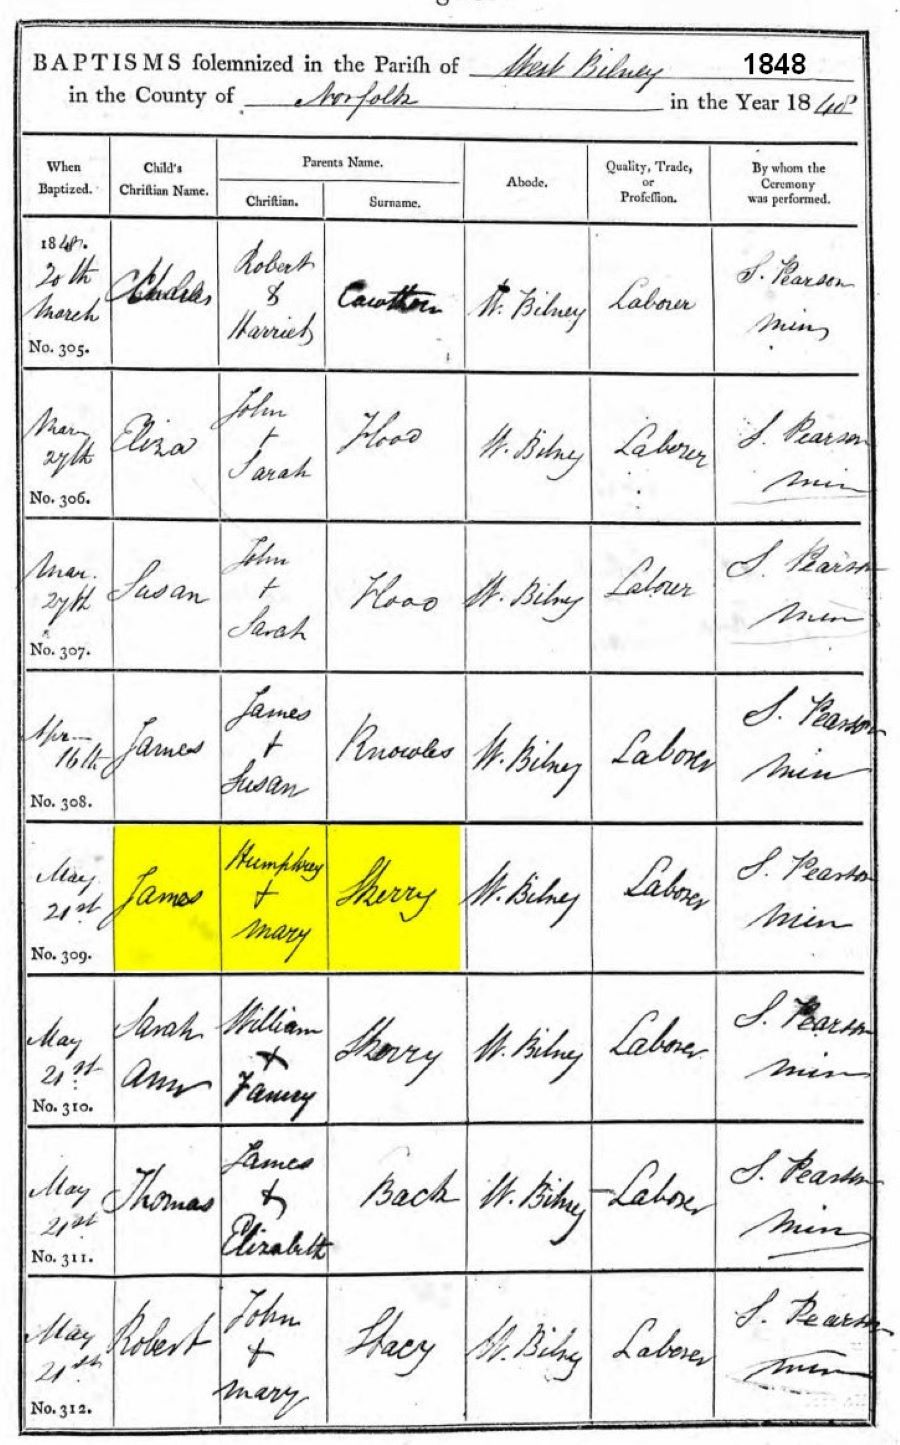 BAPTISMS ſolemnized in the Pariſh of West Bilney 1848
in the County of Norfolk in the Year 1848
When Baptized.
Child's Chriſtian Name.
Parents Name.
Chriſtian.
Surname.
Abode.
Quality, Trade, or Profeſſion.
By whom the Ceremony was performed.
1848.
20th
March
No. 305.
Charles
Robert
&
Harriet
Cawthorn
W. Bilney
Laborer
S. Pearson
Min
Mar
27th
No. 306.
Eliza
John
+
Sarah
Hood
W. Bilney
Laborer
S. Pearson
Min
Mar.
27th
No. 307.
Susan
John
+
Sarah
Hood
W. Bilney
Laborer
S. Pearson
Min
Apr
16th
No. 308.
James
James
+
Susan
Knowles
W. Bilney
Laborer
S. Pearson
Min
May
21st
No. 309.
James
Humphrey
+
Mary
Skerry
W. Bilney
Laborer
S. Pearson
Min
May
21st
No. 310.
Sarah
Ann
William
+
Fanny
Skerry
W. Bilney
Laborer
S. Pearson
Min
May
21st
No. 311.
Thomas
James
&
Elizabeth
Back
W. Bilney
Laborer
S. Pearson
Min
May
21st
No. 312.
Robert
John
+
Mary
Stacy
W. Bilney
Laborer
S. Pearson
Min